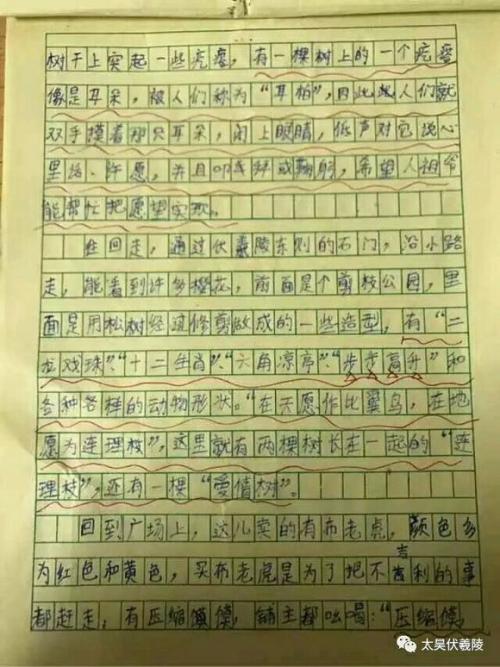 树干上突起一些疙瘩，有一棵树上的一个疙瘩
像是耳朵，被人们称为“耳柏”，因此人们就
双手摸着那只耳朵，闭上眼睛，低声对它说心
里话、许愿，并且叩拜或鞠躬，希望人祖爷
能帮忙把愿望实现。
往回走，通过伏羲陵东侧的石门，沿小路
走，能看到许多樱花，前面是个剪枝公园，里
面是用松树经过修剪做成的一些造型，有“二
龙戏珠”“十二生肖”“六角凉亭”“步步高升”和
各种各样的动物形状。“在天愿作比翼鸟，在地
愿为连理枝”，这里就有两棵树长在一起的“连
理枝”，还有一棵“爱情树”。
回到广场上，这儿卖的有布老虎，颜色多
为红色和黄色，买布老虎是为了把不吉利的事
都赶走，有压缩馍馍，铺主都吆喝：“压缩馍，
太昊伏羲陵